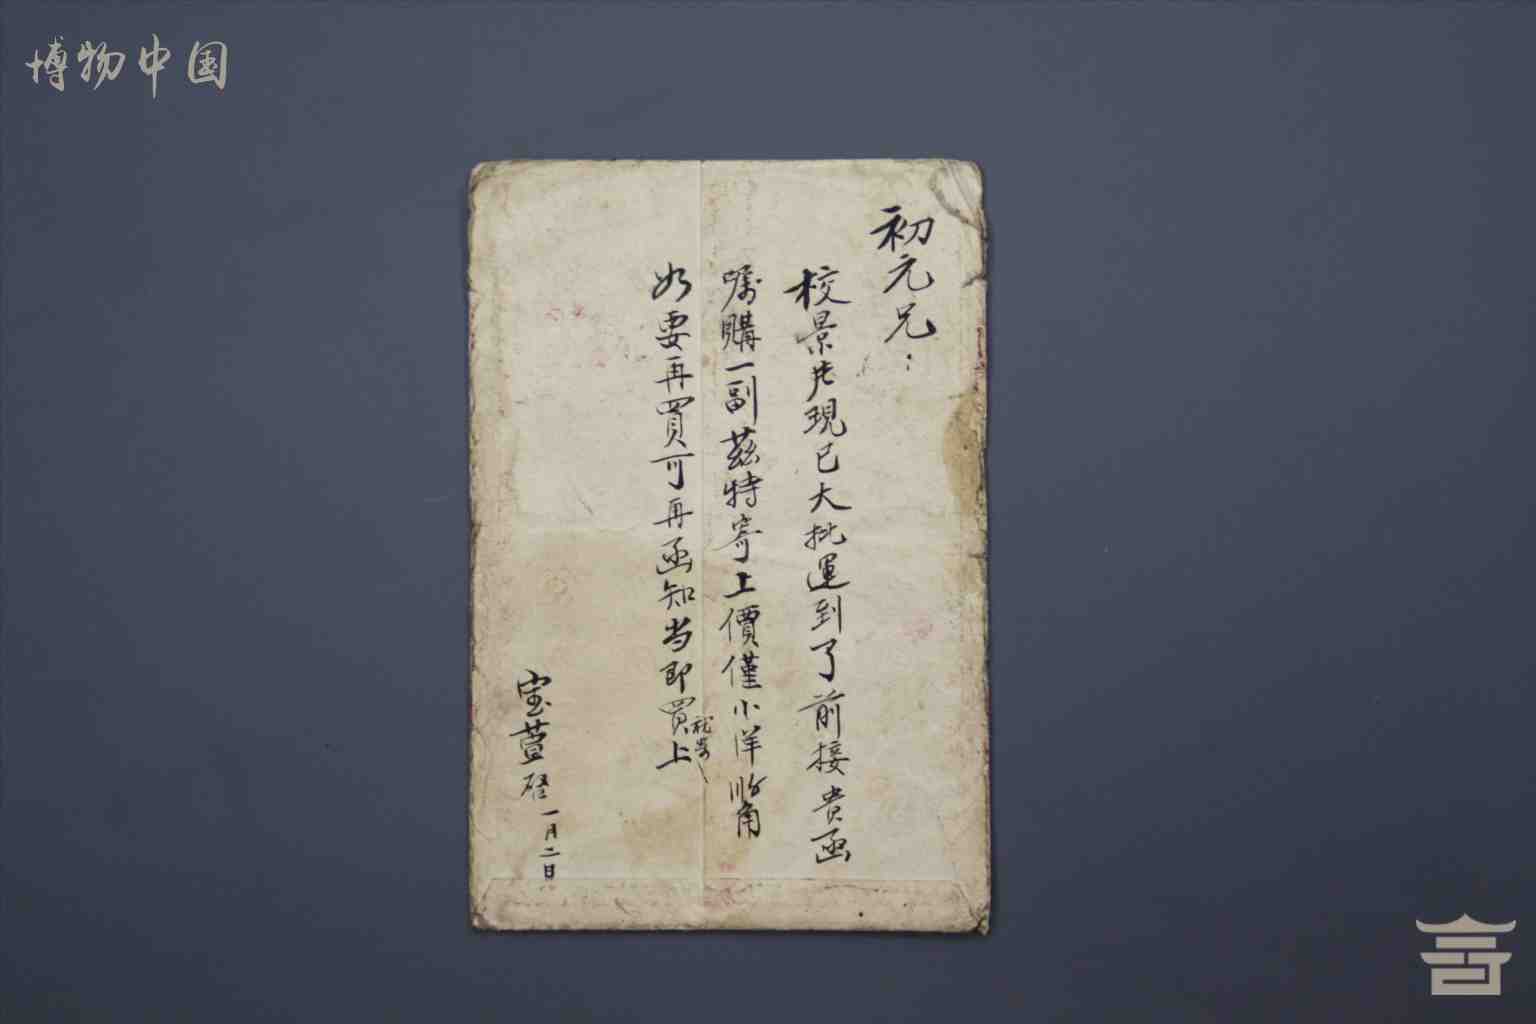 博物中国
初元兄：
校景片現已大批運到了前接貴函
嘱購一副茲特寄上價僅小洋角
如要再買可再函知当即買就寄上
宝萱啓
一月二日